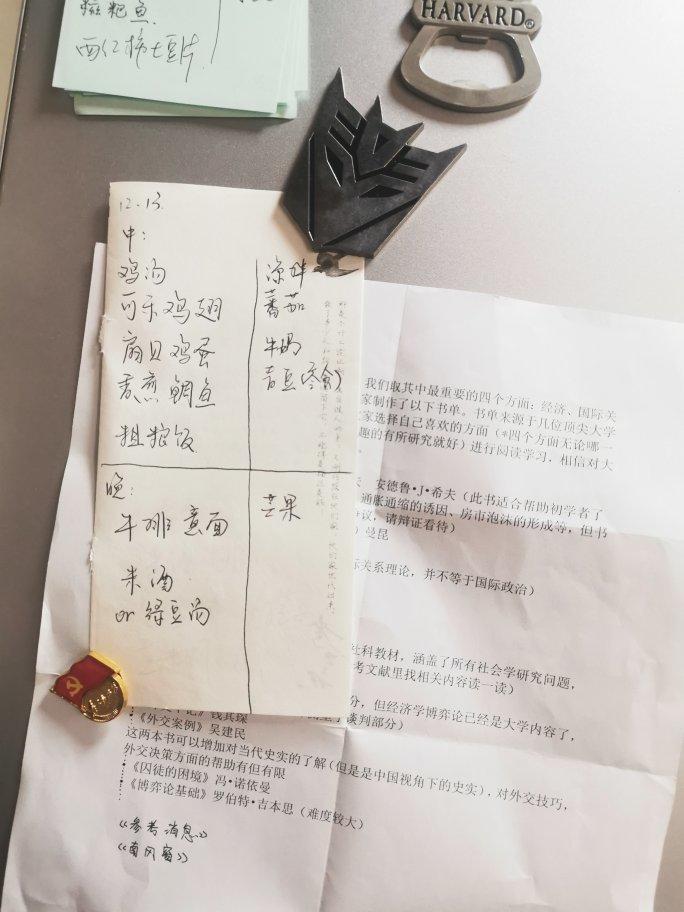 糍粑鱼
西红柿土豆片
HARVARD®
12.13.
中:
鸡汤
可乐鸡翅
扇贝鸡蛋
香煎鲷鱼
粗粮饭
凉拌
番茄
牛奶
青豆(零食)
晚:
牛排 意面
米酒
or 绿豆汤
芒果
我们取其中最重要的四个方面：经济、国际关
家制作了以下书单。书单来源于几位顶尖大学
家选择自己喜欢的方面（*四个方面无论哪一
趣的有所研究就好）进行阅读学习，相信对大
安德鲁•J•希夫（此书适合帮助初学者了
通胀通缩的诱因、房市泡沫的形成等，但书
议，请辩证看待）
）曼昆
际关系理论，并不等于国际政治）
社科教材，涵盖了所有社会学研究问题，
考文献里找相关内容读一读）
分，但经济学博弈论已经是大学内容了，
谈判部分）
钱其琛
•《外交案例》吴建民
这两本书可以增加对当代史实的了解（但是是中国视角下的史实），对外交技巧，
外交决策方面的帮助有但有限
•《囚徒的困境》冯•诺依曼
《博弈论基础》罗伯特•吉本思（难度较大）
《参考消息》
《南风窗》